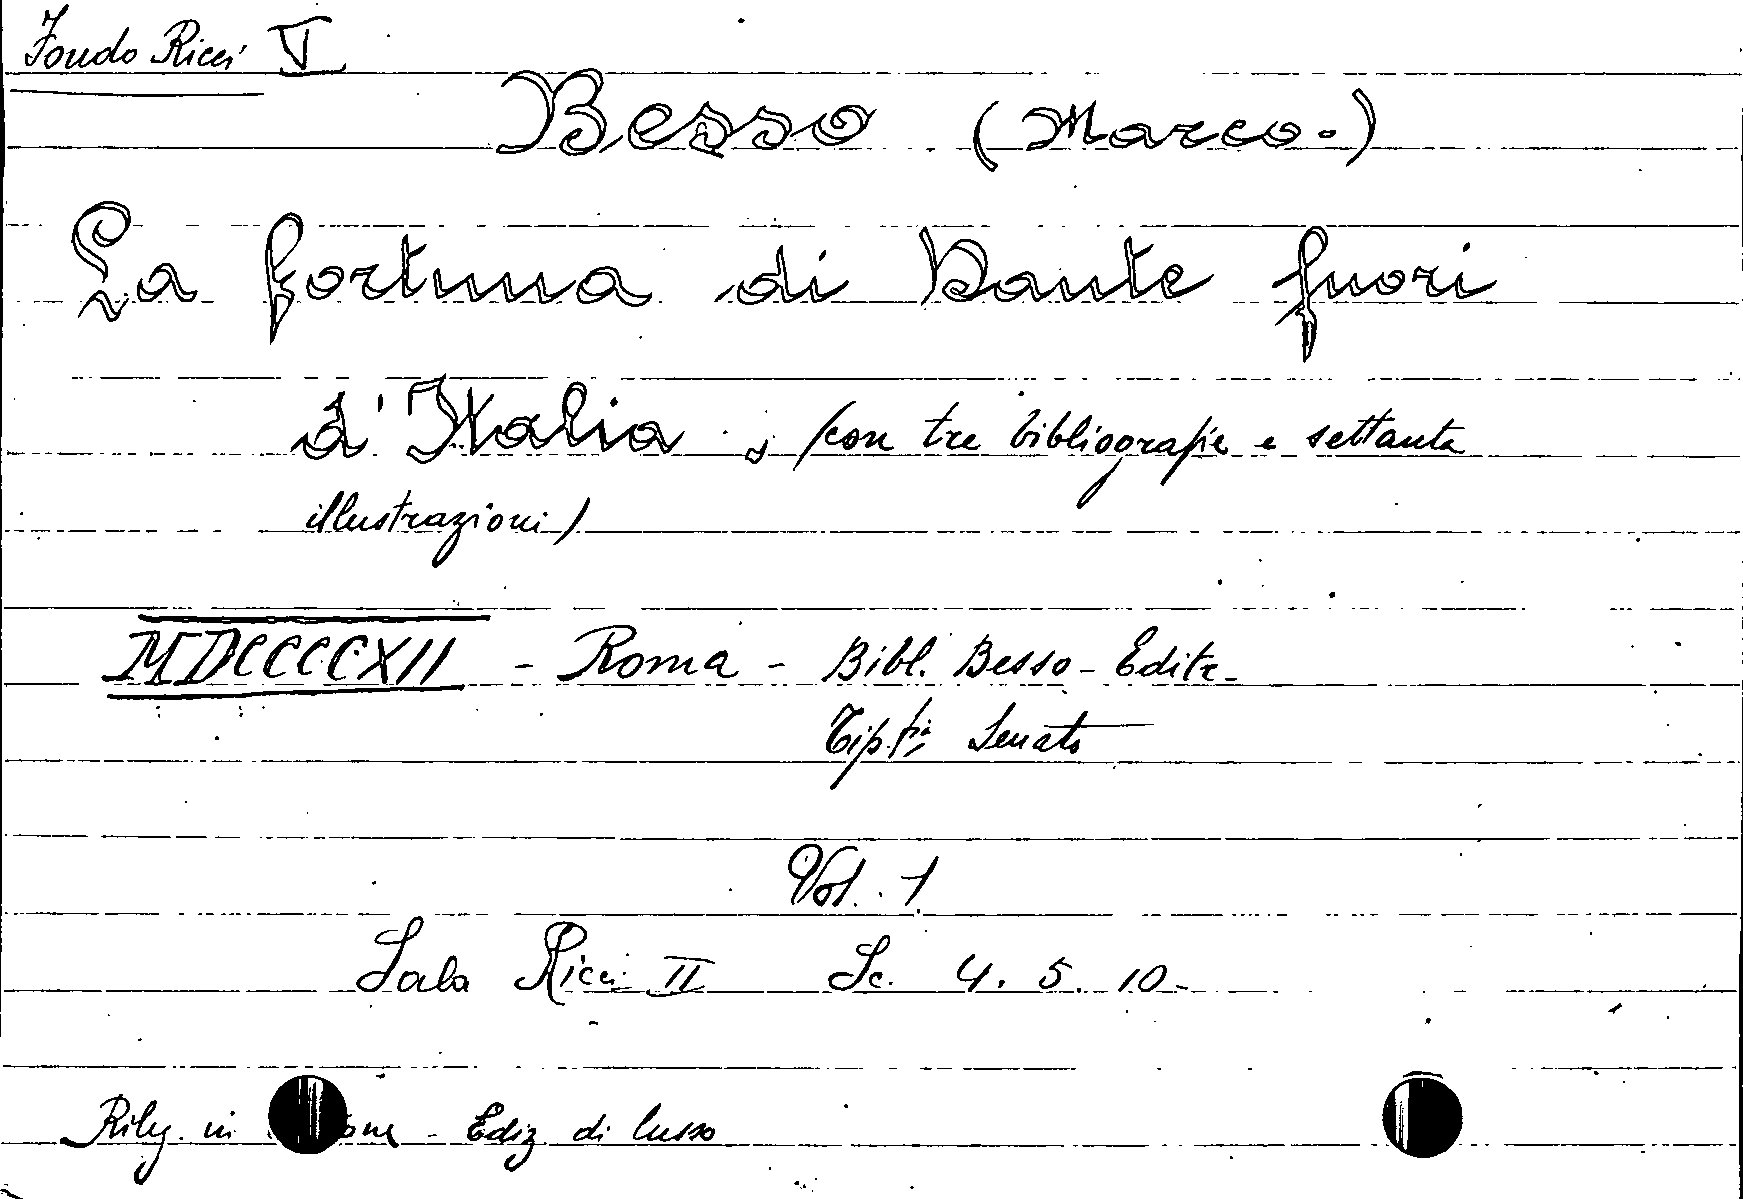 Fondo Ricci V
Besso (Marco.)
La fortuna di Dante fuori
d'Italia, (con tre bibliografie e settanta
illustrazioni)
MDCCCCXII - Roma - Bibl. Besso - Editr.
Tip. fia Senato
Vol. 1
Sala Ricci II Sc. 4. 5. 10.
Rileg. in - Ediz. di lusso